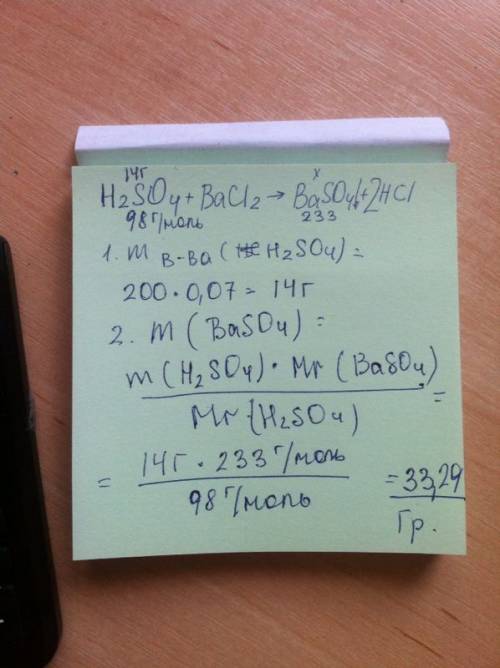 14г x
H₂SO₄ + BaCl₂ → BaSO₄↓ + 2HCl
98 г/моль 233
1. m в-ва (H₂SO₄) =
200 · 0,07 = 14г
2. m (BaSO₄) =
m (H₂SO₄) · Mr (BaSO₄)
=
Mr (H₂SO₄)
= 14г · 233 г/моль
98 г/моль
= 33,29
Гр.